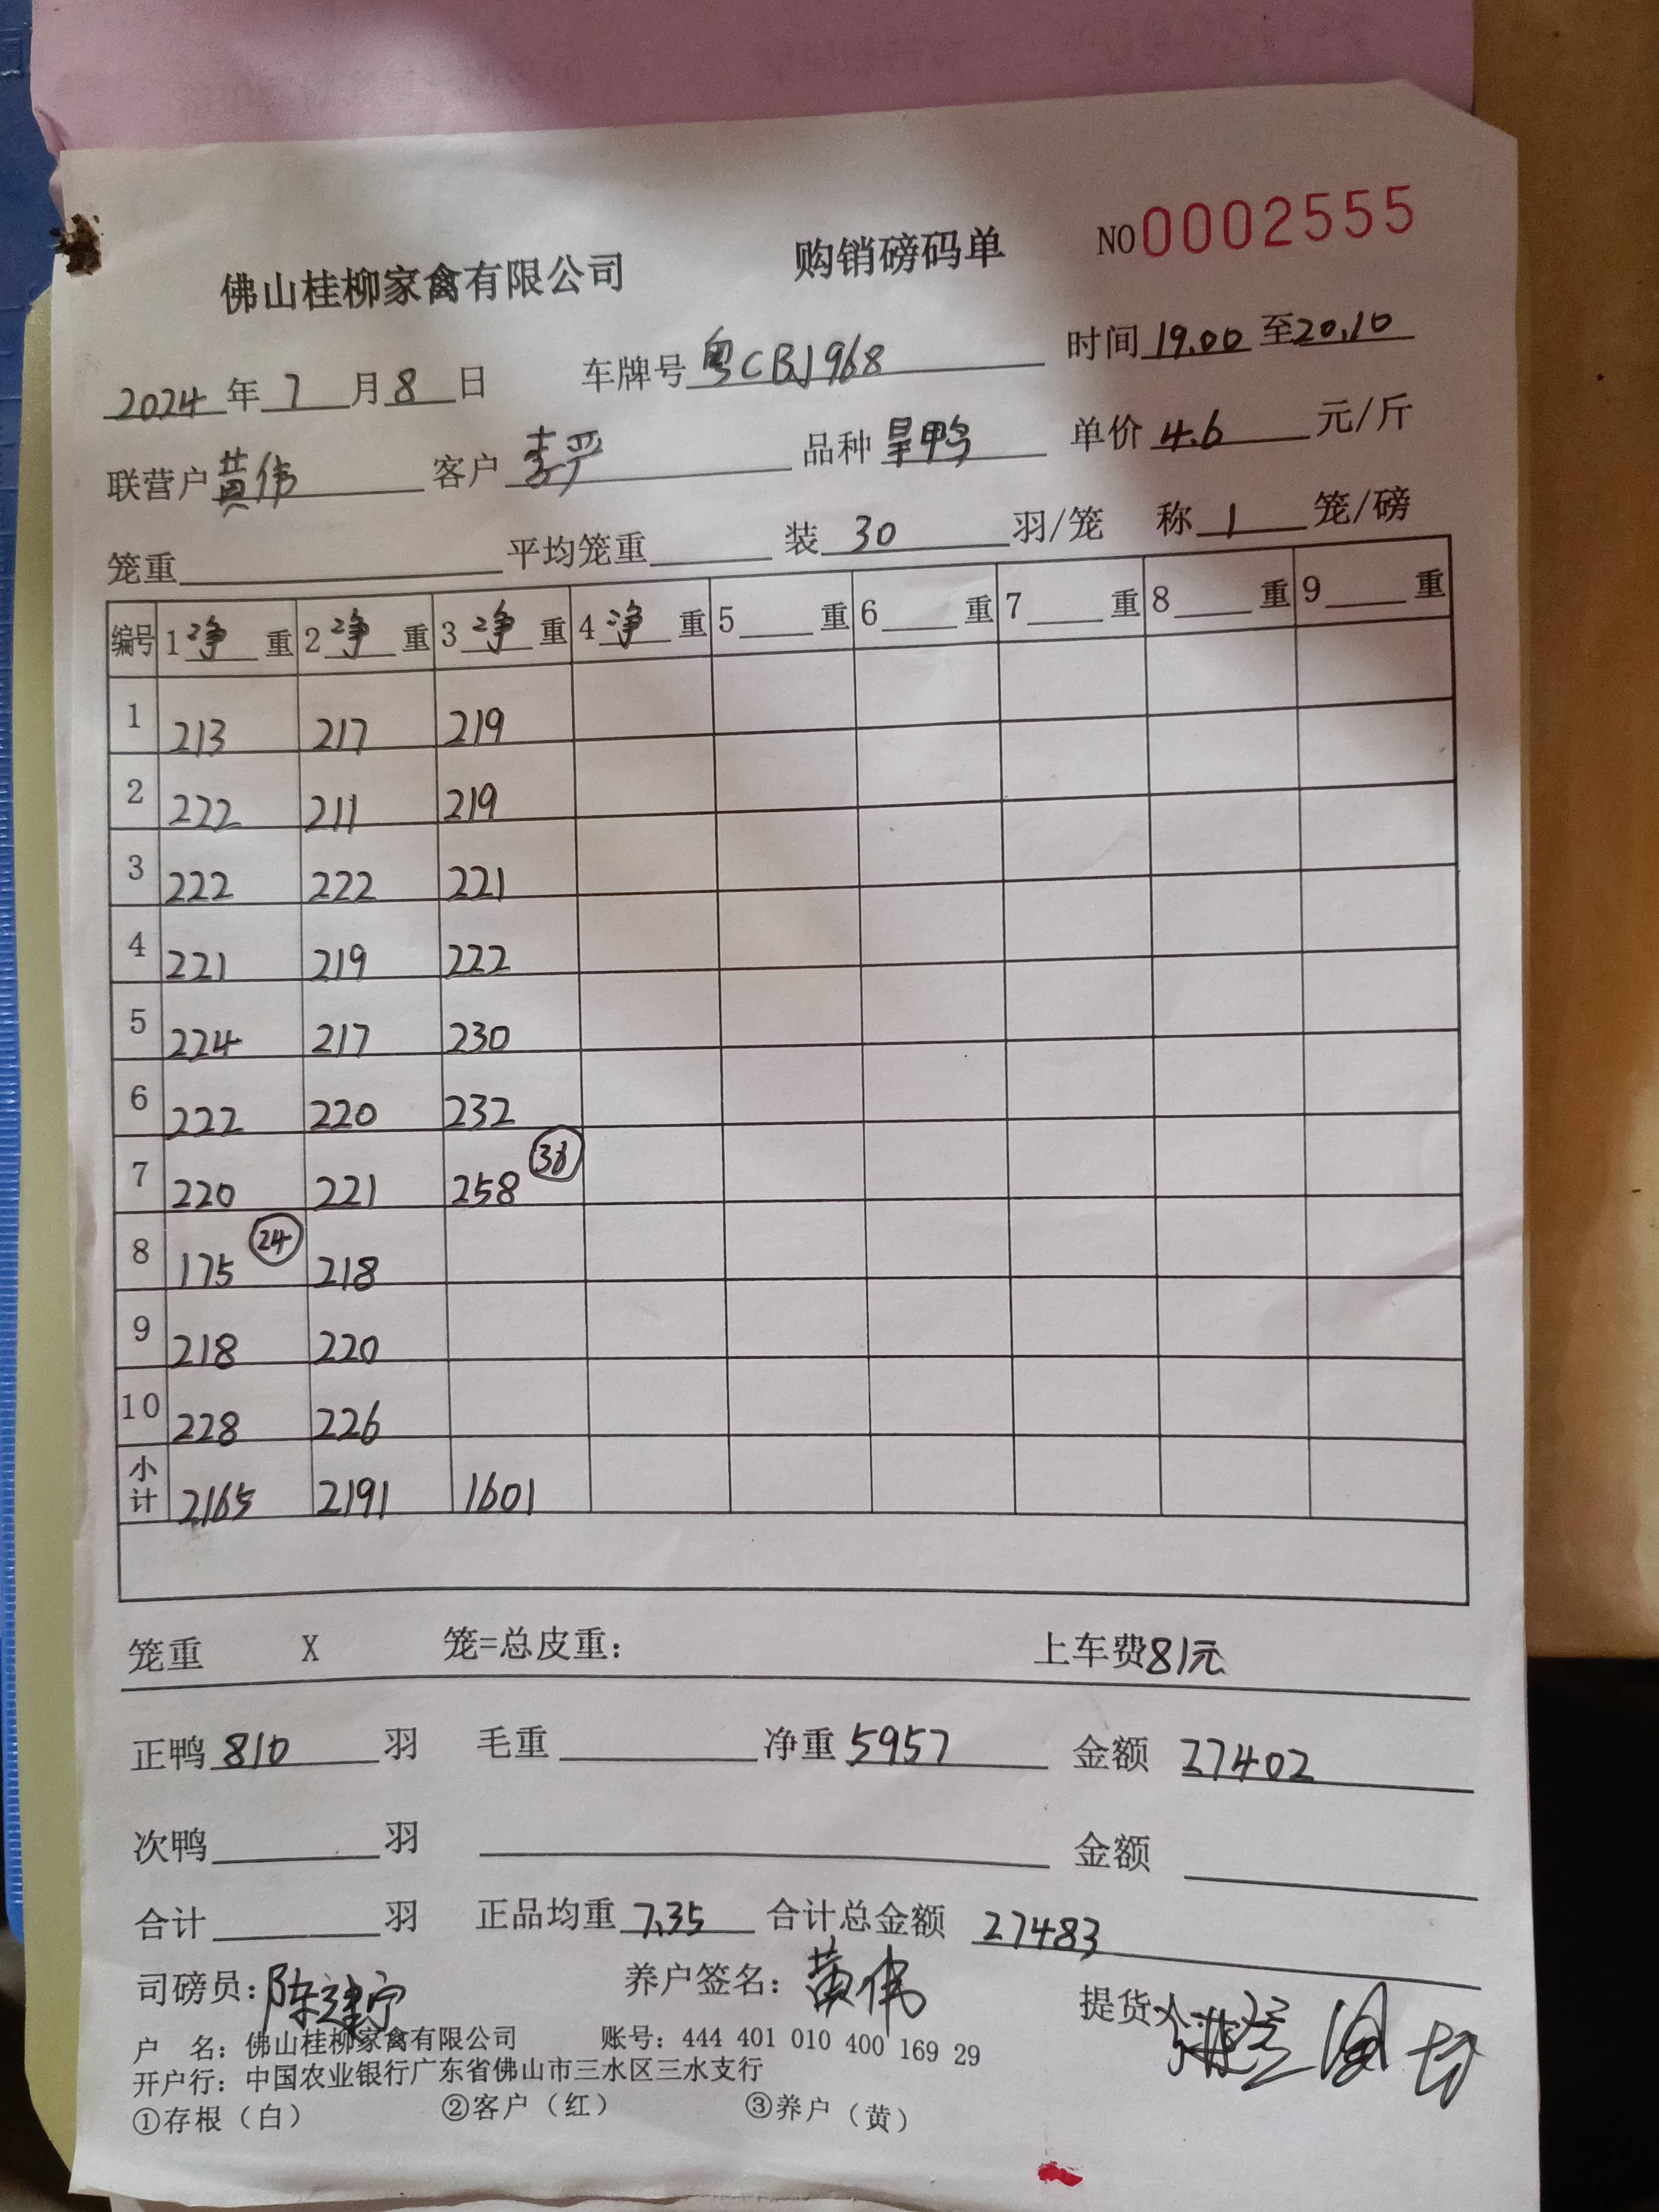 佛山桂柳家禽有限公司 购销磅码单 NO 0002555
2024 年 7 月 8 日 车牌号 粤CBJ968 时间 19.00 至 20.10
联营户 黄伟 客户 李严 品种 旱鸭 单价 4.6 元/斤
笼重 平均笼重 装 30 羽/笼 称 1 笼/磅
编号 1 净 重 2 净 重 3 净 重 4 净 重 5 重 6 重 7 重 8 重 9 重
1 213 217 219
2 222 211 219
3 222 222 221
4 221 219 222
5 224 217 230
6 222 220 232
7 220 221 258 36
8 175 24 218
9 218 220
10 228 226
小计 2165 2191 1601
笼重 X 笼=总皮重: 上车费 81元
正鸭 810 羽 毛重 净重 5957 金额 27402
次鸭 羽 金额
合计 羽 正品均重 7.35 合计总金额 27483
司磅员: 陈建宁 养户签名: 黄伟 提货人
户 名: 佛山桂柳家禽有限公司 账号: 444 401 010 400 169 29
开户行: 中国农业银行广东省佛山市三水区三水支行
①存根（白） ②客户（红） ③养户（黄）